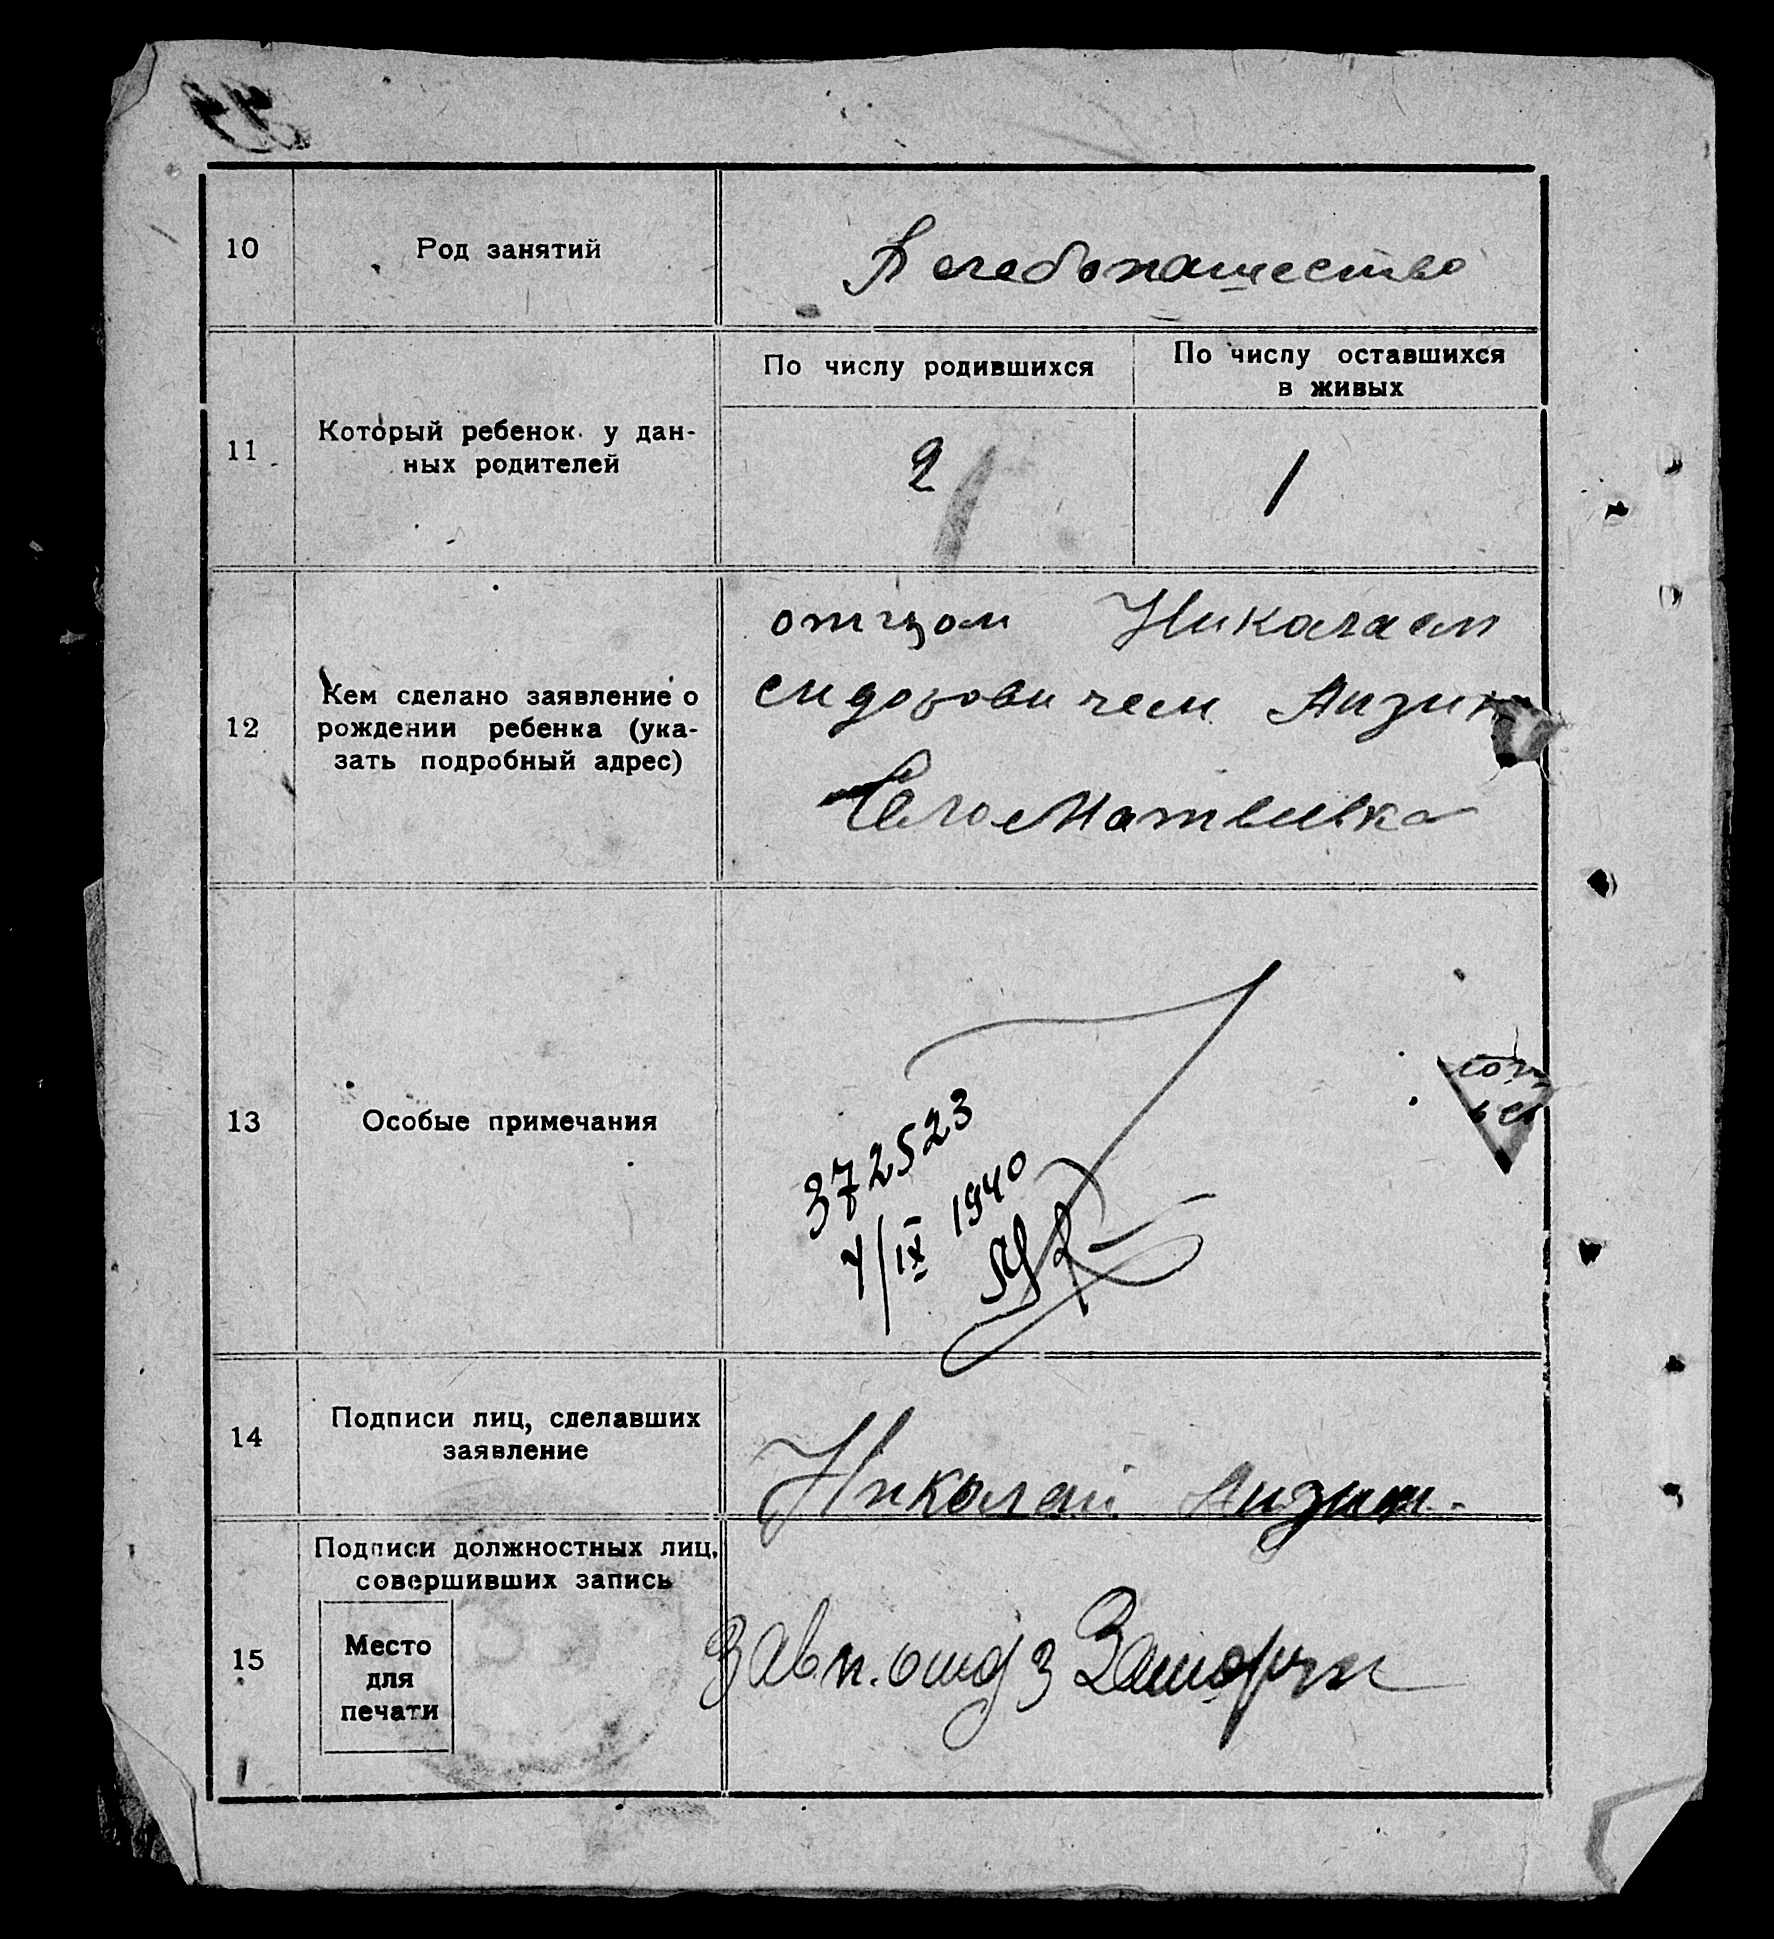 10
Род занятий
хлебопашество
11
Который ребенок у дан-
ных родителей
По числу родившихся
По числу оставшихся
в живых
2
1
12
Кем сделано заявление о
рождении ребенка (ука-
зать подробный адрес)
отцом Николаем
сидоровичем
Село Матвеевка
13
Особые примечания
372523
4/IX 1940
14
Подписи лиц, сделавших
заявление
Николай
15
Подписи должностных лиц,
совершивших запись
Место
для
печати